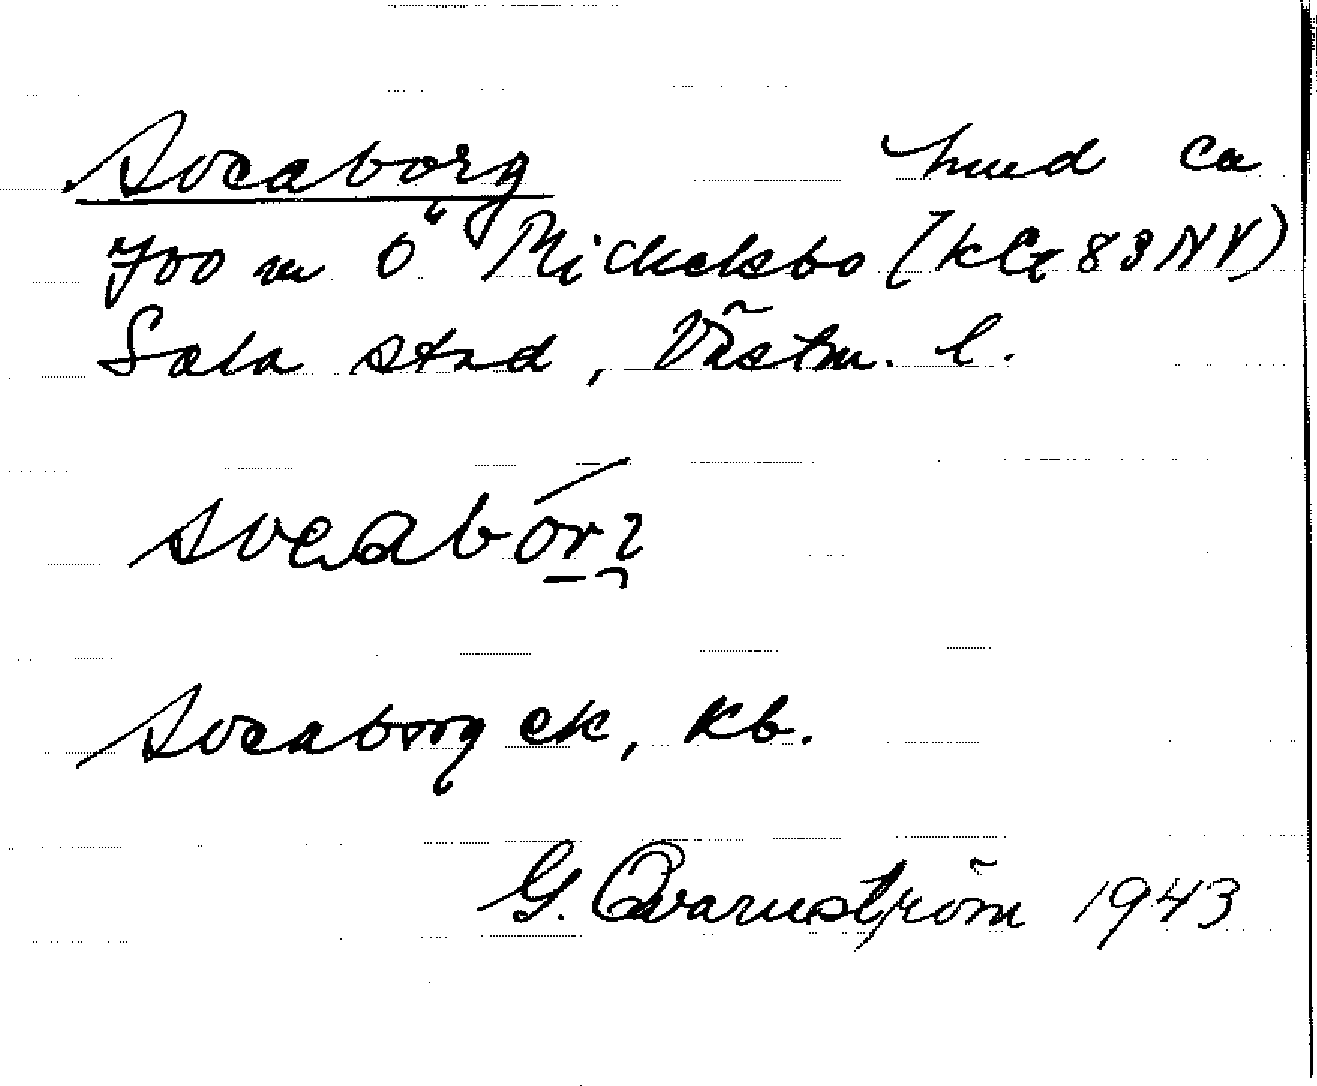 Sveaborg hmd ca
700 m Ö Mickelsbo (kbl 83 NV)
Sala stad, Västm. l.
sveabórg
Sveaborg ek, kb.
G. Qvarnström 1943